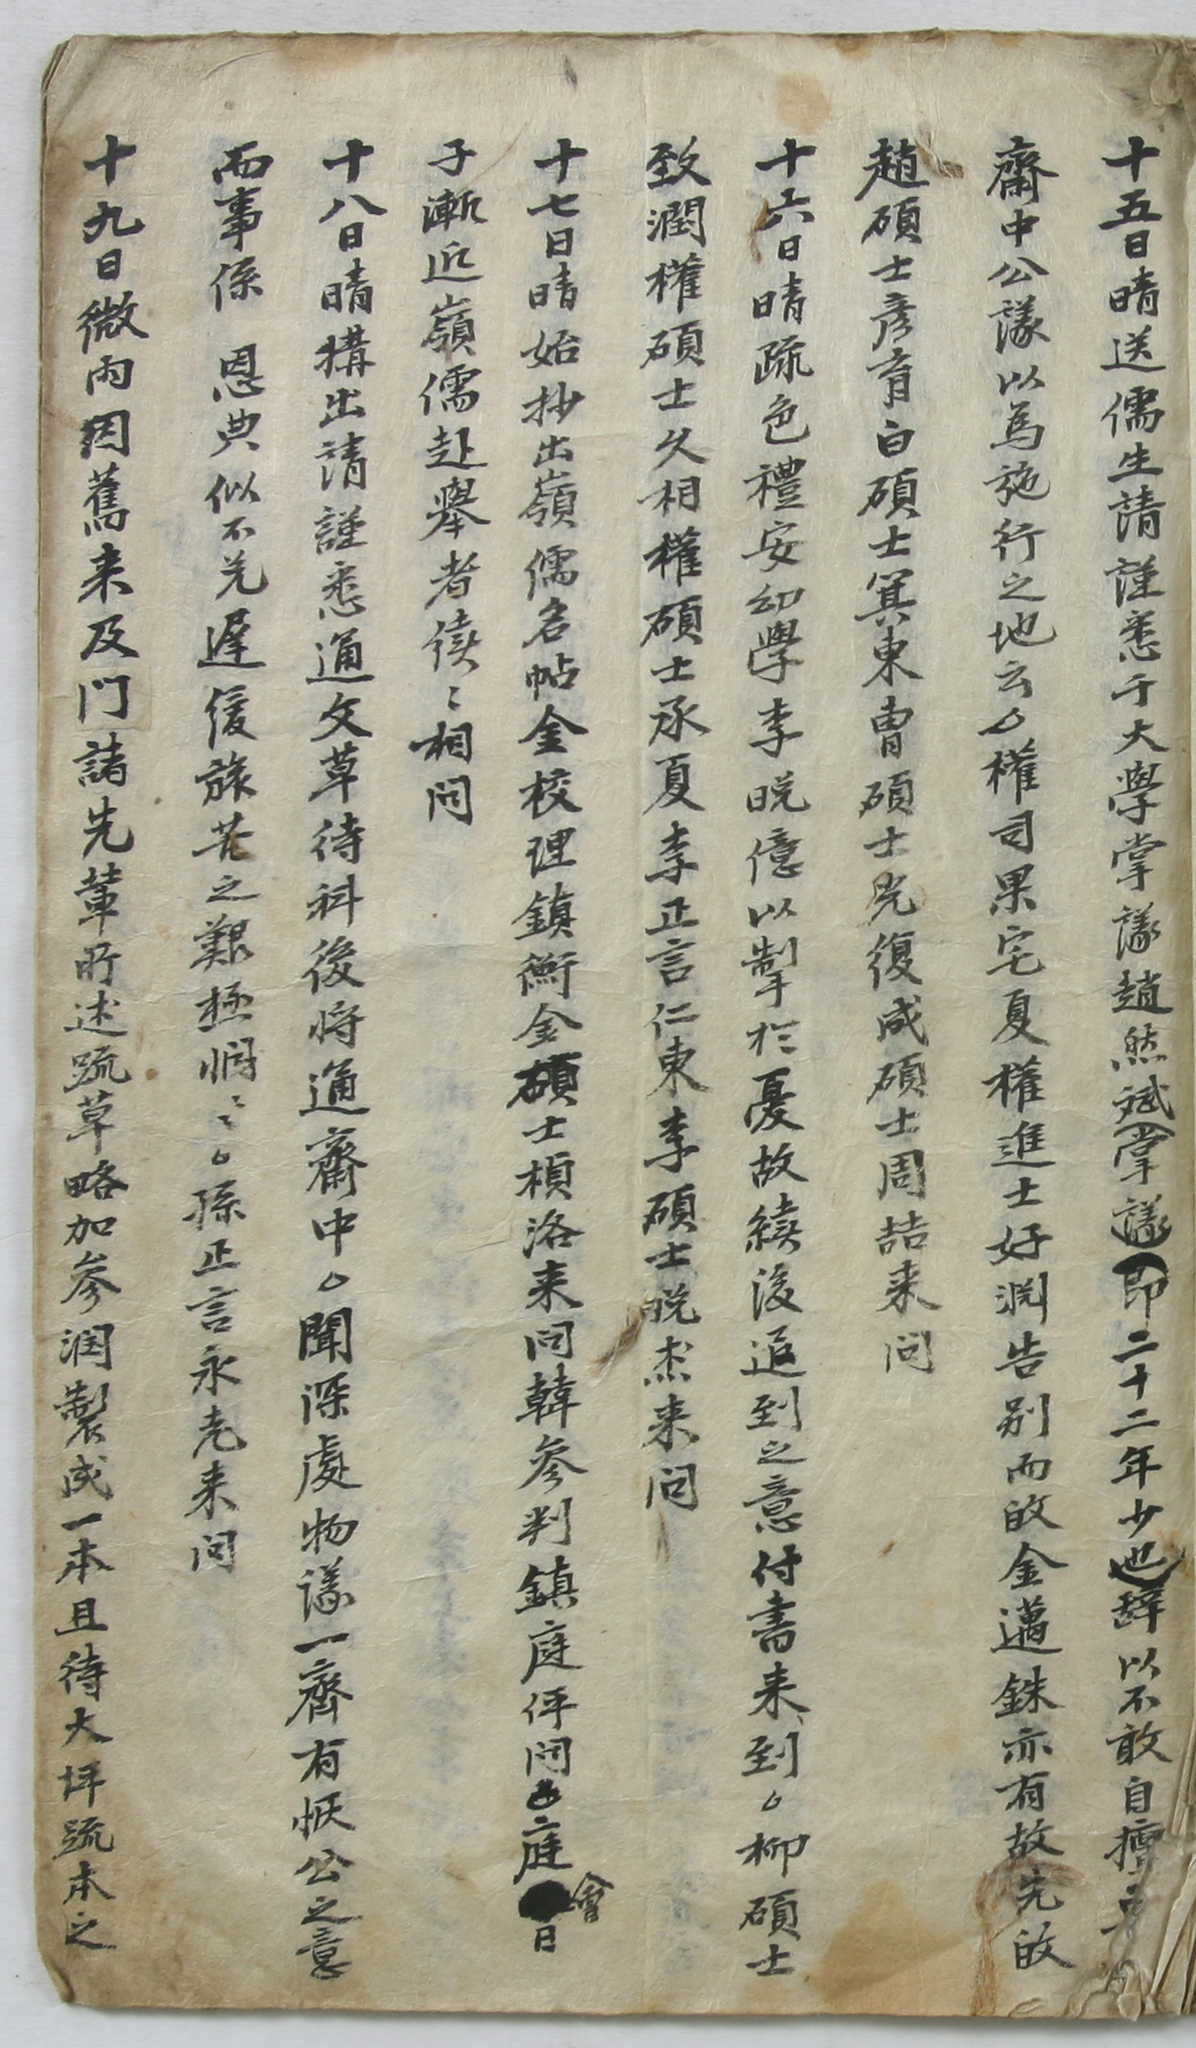 十五日晴送儒生請謹悉于大學掌議趙然斌掌議即二十二年少也辭以不敢自擅
齋中公議以爲施行之地云 權司果宅夏權進士好淵告別而啟金邁銖亦有故先啟
趙碩士彦育白碩士箕東曺碩士光復成碩士周喆来問
十六日晴疏色禮安幼學李晩億以掣於憂故續後追到之意付書来到 柳碩士
致潤權碩士久相權碩士承夏李正言仁東李碩士晩杰来問
十七日晴始抄出嶺儒名帖金校理鎭衡金碩士楨洛来問韓參判鎭庭伻問 庭會日
子漸近嶺儒赴擧者續〻相問
十八日晴搆出請謹悉通文草待科後將通齋中 聞深處物議一齊有恢公之意
而事係 恩典似不免遲緩旅苦之艱極悶〻 孫正言永老来問
十九日微雨因舊来及門諸先輩所述疏草略加參潤製成一本且待大坪疏本之